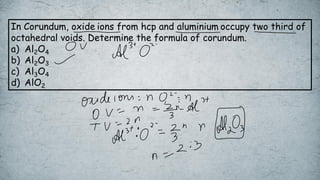 In Corundum, oxide ions from hcp and aluminium occupy two third of
octahedral voids. Determine the formula of corundum.
a) Al₂O₄
b) Al₂O₃
c) Al₃O₄
d) AlO₂
O V
Al³⁺ O²⁻
oxide ions : n O²⁻ : n
O V = n = 2/3 n Al³⁺
T V = 2n
Al³⁺ : O²⁻ = 2/3 n n
n = 2 : 3
Al₂O₃